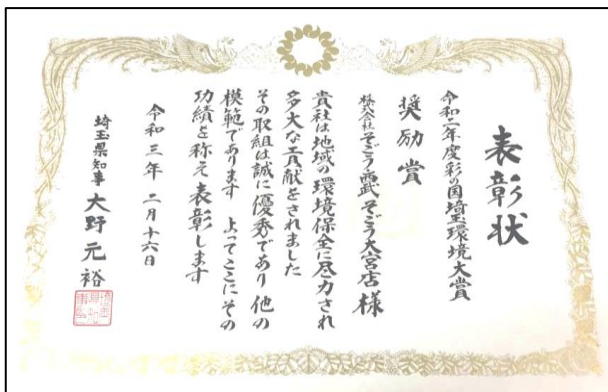 表彰状
令和二年度彩の国埼玉環境大賞
奨励賞
株式会社そごう・西武 そごう大宮店 様
貴社は地域の環境保全に尽力され
多大な貢献をされました
その取組は誠に優秀であり 他の
模範であります よってここにその
功績を称え表彰します
令和三年 二月十六日
埼玉県知事 大野元裕